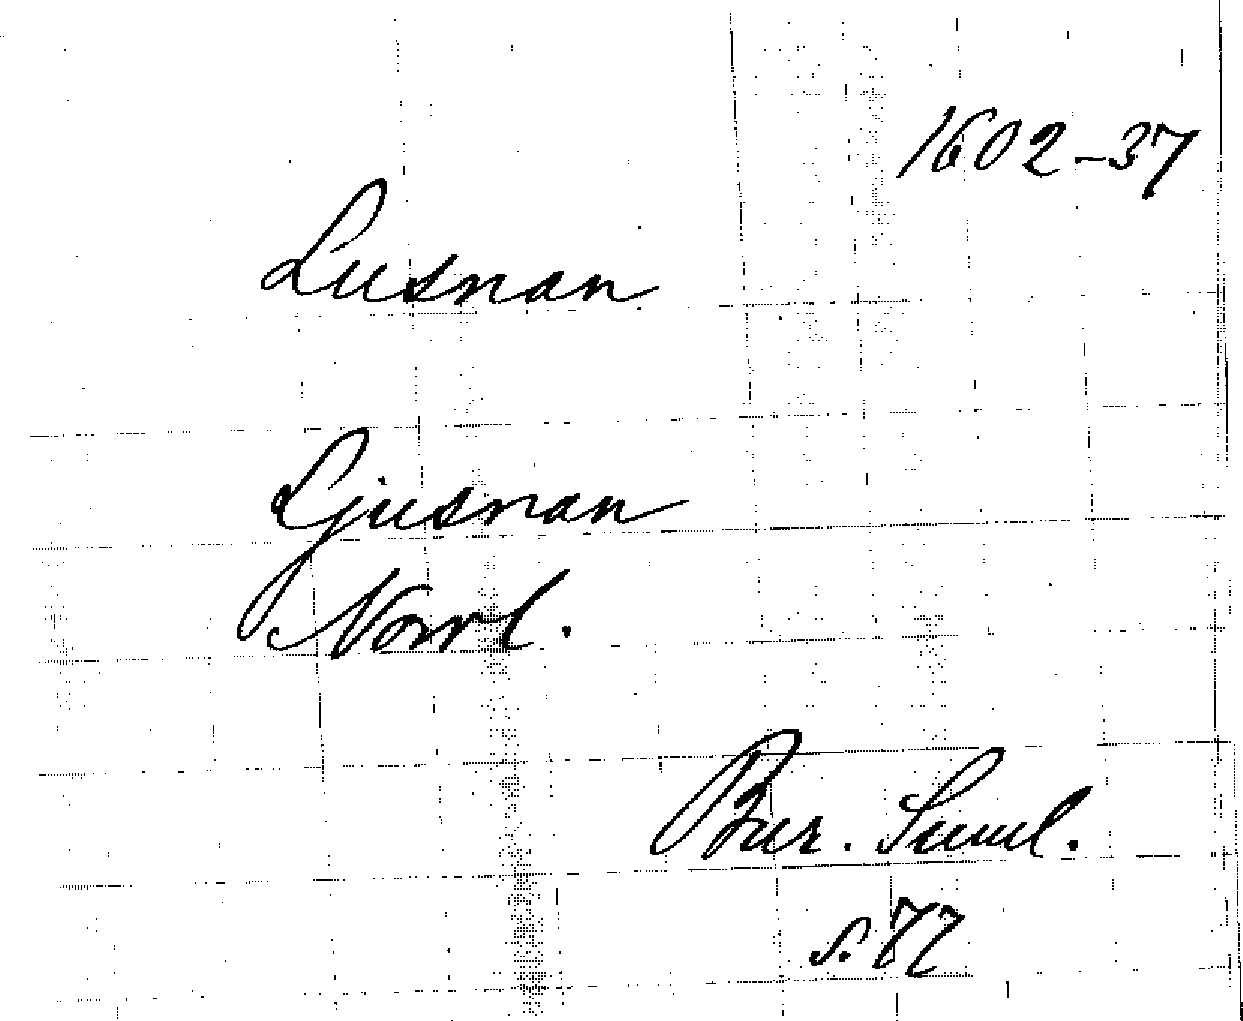 1602-37
Lusnan
Ljusnan
Norrl.
Bur. Suml.
s. 77